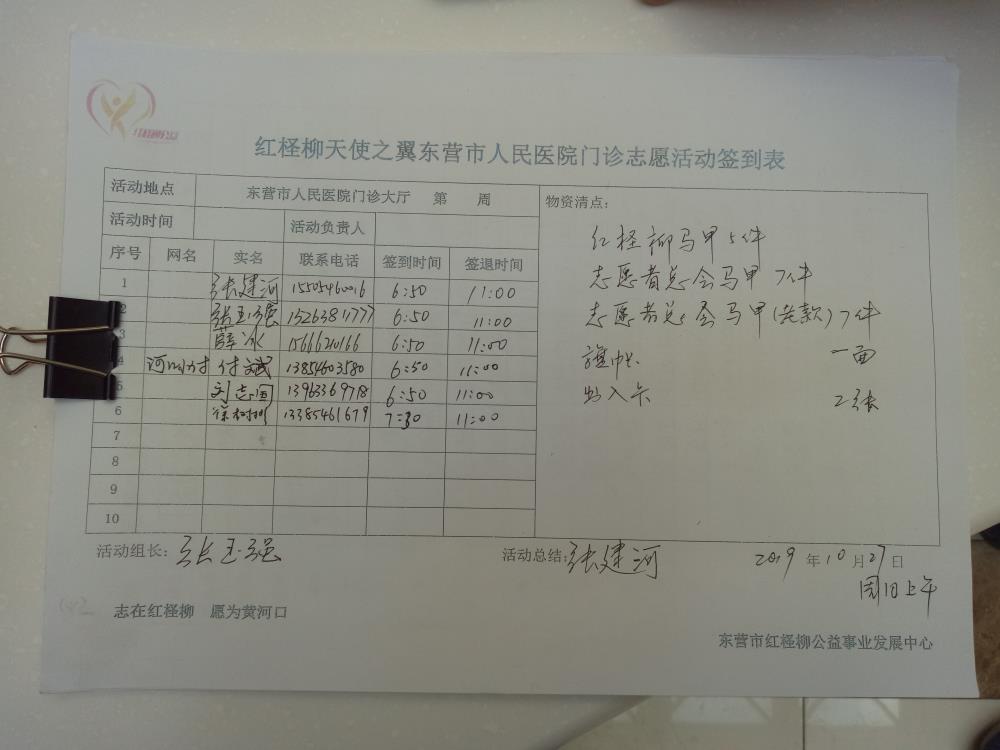 红柽柳公益
红柽柳天使之翼东营市人民医院门诊志愿活动签到表
活动地点 东营市人民医院门诊大厅 第 周
活动时间 活动负责人
序号 网名 实名 联系电话 签到时间 签退时间
1 张建河 15505460016 6:50 11:00
2 张玉强 15263811777 6:50 11:00
3 薛冰 15666210166 6:50 11:00
4 付斌 13854603580 6:50 11:00
5 刘志国 13963369778 6:50 11:00
6 13385461679 7:30 11:00
7
8
9
10
物资清点:
红柽柳马甲5件
志愿者总会马甲 7件
志愿者总会马甲(老款)7件
旗帜 一面
出入卡 2张
活动组长: 张玉强
活动总结: 张建河
2019 年 10 月 27 日
周日上午
志在红柽柳 愿为黄河口
东营市红柽柳公益事业发展中心